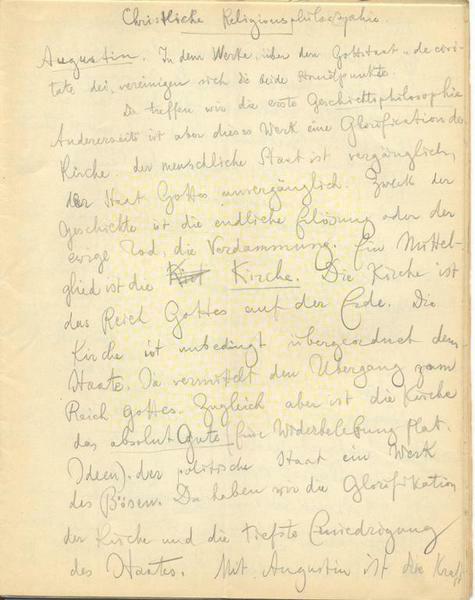 Christliche Religionsphilosophie.
Augustin. In dem Werke über den Gottstaat „de civi-
tate dei, vereinigen sich die beide Standpunkte.
Da treffen wir die erste Geschichtsphilosophie
Andererseits ist aber dieses Werk eine Glorification der
Kirche. der menschliche Staat ist vergänglich,
der Staat Gottes unvergänglich. Zweck der
Geschichte ist die endliche Erlösung oder der
ewige Tod, die Verdammung. Ein Mittel-
glied ist die Kirche. Die Kirche ist
das Reich Gottes auf der Erde. Die
Kirche ist unbedingt übergeordnet dem
Staate. Sie vermittelt den Übergang zum
Reich Gottes. Zugleich aber ist die Kirche
das absolut Gute (eine Widerbelebung plat.
Ideen). der politische Staat ein Werk
des Bösen. Da haben wir die Glorifikation
der Kirche und die tiefste Erniedrigung
des Staates. Mit Augustin ist die Kraft